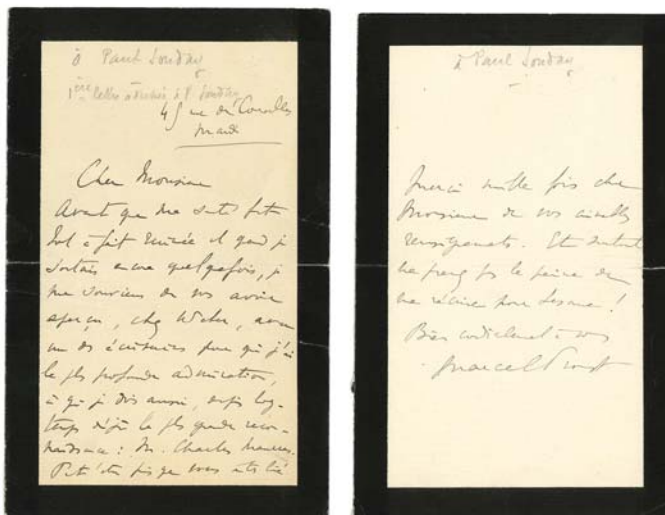 à Paul Souday
1ère lettre adressée à P. Souday
45 rue de Courcelles
mardi
Cher Monsieur
Avant que ma santé fût
tout à fait ruinée et quand je
sortais encore quelquefois, je
me souviens de vous avoir
aperçu, chez Weber, avec
un des écrivains pour qui j'ai
la plus profonde admiration,
à qui je dois aussi, depuis long-
temps déjà la plus grande recon-
naissance : M. Charles Maurras.
Peut'être puisque vous êtes lié
à Paul Souday
Merci mille fois cher
Monsieur de vos aimables
renseignements. Et surtout
ne prenez pas la peine de
me récrire pour Lesome !
Bien cordialement à vous
Marcel Proust